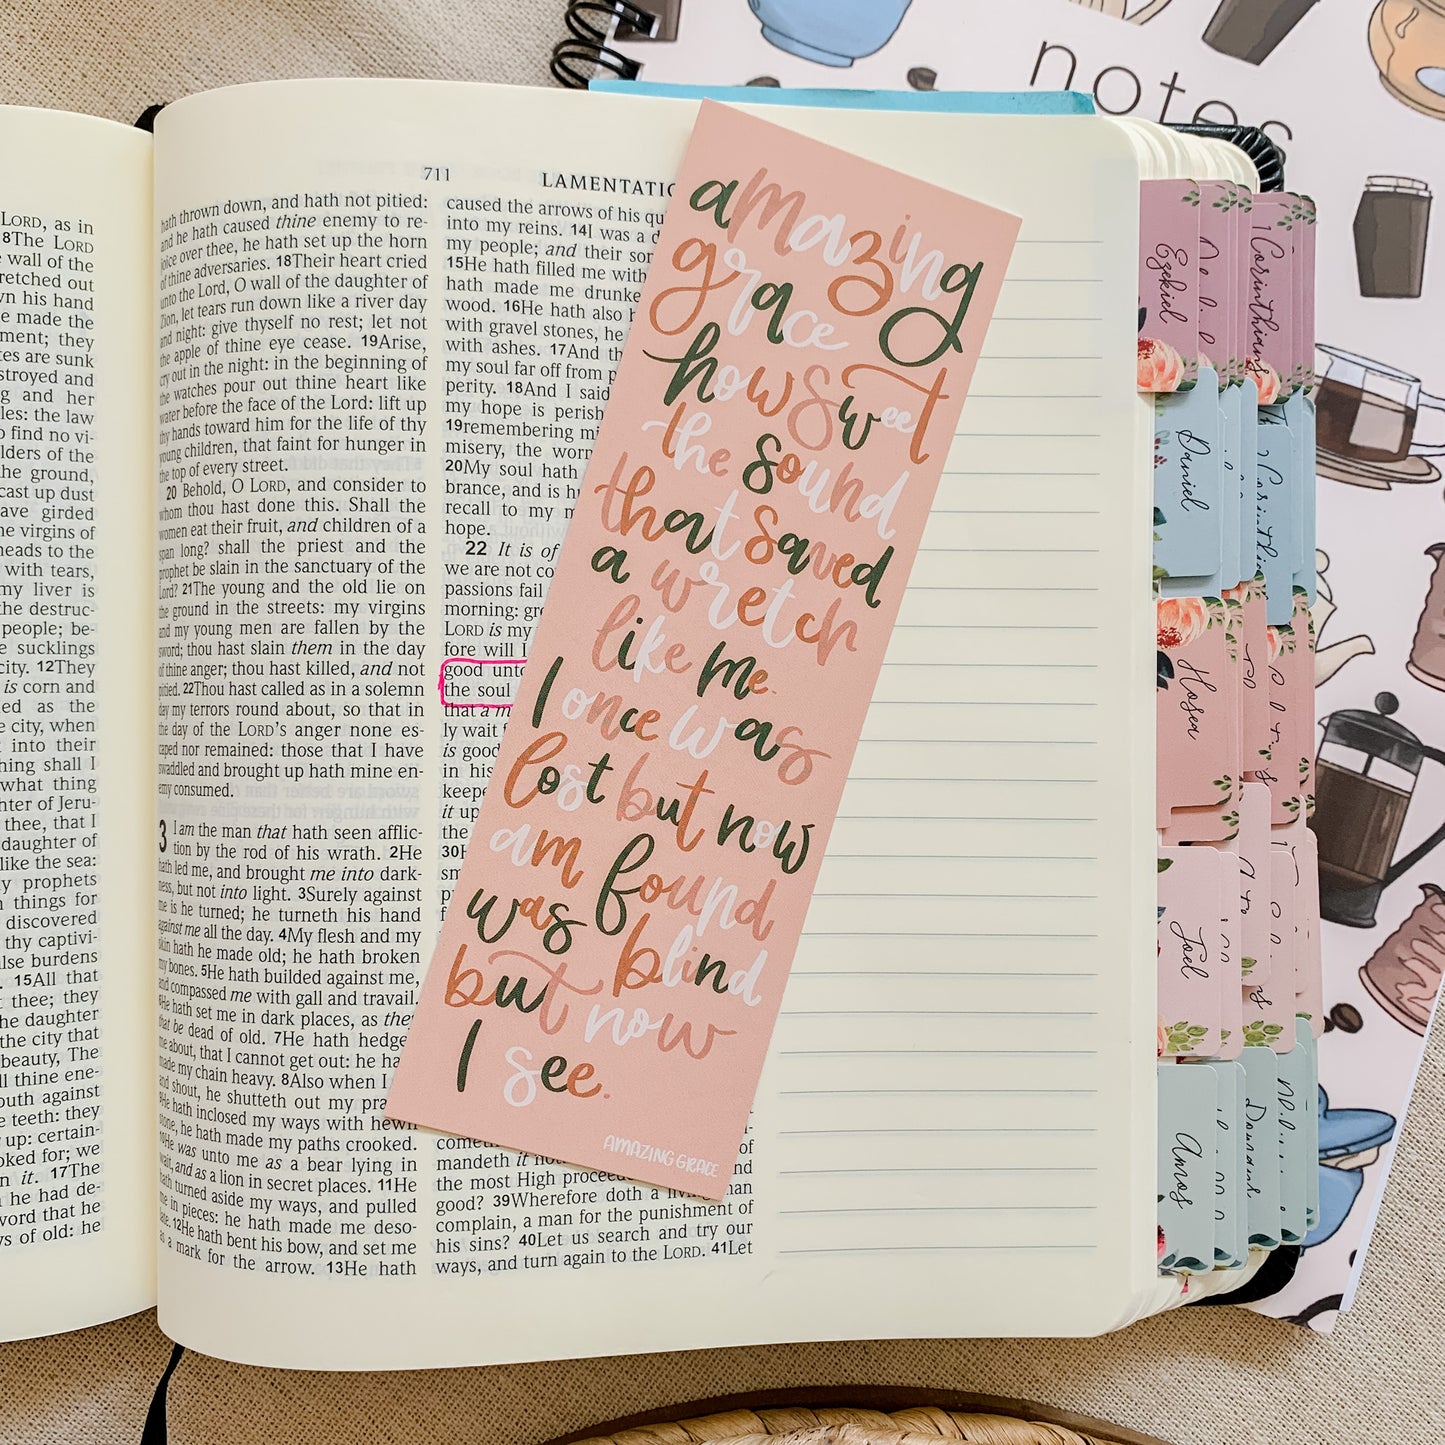 notes
LORD, as in
8The LORD
wall of the
retched out
his hand
made the
ment; they
tes are sunk
stroyed and
and her
les: the law
find no vi-
lders of the
the ground,
cast up dust
ave girded
virgins of
heads to the
with tears,
my liver is
the destruc-
people; be-
sucklings
city. 12They
is corn and
ed as the
city, when
into their
hing shall I
what thing
hter of Jeru-
thee, that I
daughter of
like the sea:
prophets
things for
discovered
thy captivi-
lse burdens
15All that
thee; they
the daughter
the city that
beauty, The
ll thine ene-
outh against
teeth: they
up: certain-
oked for; we
it. 17The
he had de-
word that he
s of old: he
711 LAMENTATIO
hath thrown down, and hath not pitied:
and he hath caused thine enemy to re-
joice over thee, he hath set up the horn
of thine adversaries. 18Their heart cried
unto the Lord, O wall of the daughter of
Zion, let tears run down like a river day
and night: give thyself no rest; let not
the apple of thine eye cease. 19Arise,
cry out in the night: in the beginning of
the watches pour out thine heart like
water before the face of the Lord: lift up
thy hands toward him for the life of thy
young children, that faint for hunger in
the top of every street.
20 Behold, O LORD, and consider to
whom thou hast done this. Shall the
women eat their fruit, and children of a
span long? shall the priest and the
prophet be slain in the sanctuary of the
Lord? 21The young and the old lie on
the ground in the streets: my virgins
and my young men are fallen by the
sword; thou hast slain them in the day
of thine anger; thou hast killed, and not
pitied. 22Thou hast called as in a solemn
day my terrors round about, so that in
the day of the LORD's anger none es-
caped nor remained: those that I have
swaddled and brought up hath mine en-
emy consumed.
3 I am the man that hath seen afflic-
tion by the rod of his wrath. 2He
hath led me, and brought me into dark-
ness, but not into light. 3Surely against
me is he turned; he turneth his hand
against me all the day. 4My flesh and my
skin hath he made old; he hath broken
my bones. 5He hath builded against me,
and compassed me with gall and travail.
6He hath set me in dark places, as they
that be dead of old. 7He hath hedge
me about, that I cannot get out: he ha
made my chain heavy. 8Also when I
and shout, he shutteth out my pra
9He hath inclosed my ways with hewn
stone, he hath made my paths crooked.
10He was unto me as a bear lying in
wait, and as a lion in secret places. 11He
hath turned aside my ways, and pulled
me in pieces: he hath made me deso-
late. 12He hath bent his bow, and set me
as a mark for the arrow. 13He hath
caused the arrows of his qu
into my reins. 14I was a d
my people; and their son
15He hath filled me with
hath made me drunke
wood. 16He hath also b
with gravel stones, he
with ashes. 17And th
my soul far off from p
perity. 18And I said
my hope is perish
19remembering mi
misery, the worm
20My soul hath
brance, and is hu
recall to my m
hope.
22 It is of
we are not co
passions fail
morning: gre
LORD is my
fore will I
good unto
the soul
that a m
ly wait f
is good
in his
keepe
it up
the
30H
cometh
mandeth it not of
the most High proceed nd
good? 39Wherefore doth a living man
complain, a man for the punishment of
his sins? 40Let us search and try our
ways, and turn again to the LORD. 41Let
amazing
grace
how sweet
the sound
that saved
a wretch
like me.
I once was
lost but now
am found
was blind
but now
I see.
AMAZING GRACE
Ezekiel
1 Corinthians
Daniel
Hosea
Joel
Amos